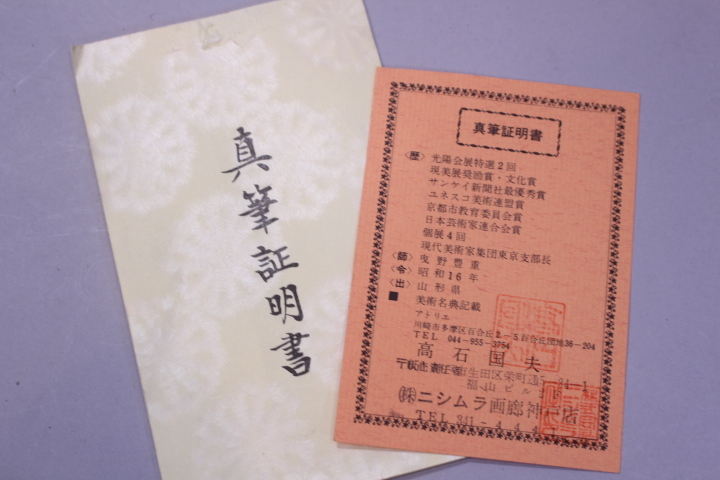 真筆証明書
真筆証明書
〈歴〉光陽会展特選2回
現美展奨励賞・文化賞
サンケイ新聞社最優秀賞
ユネスコ美術連盟賞
京都市教育委員会賞
日本芸術家連合会賞
個展4回
現代美術家集団東京支部長
〈師〉曳野豊重
〈令〉昭和16年
〈出〉山形県
■ 美術名典記載
アトリエ
川崎市多摩区百合丘2-5百合丘団地36-204
TEL 044-955-3754
高石国夫
福山ビル
㈱ニシムラ画廊神戸店
TEL 341-4